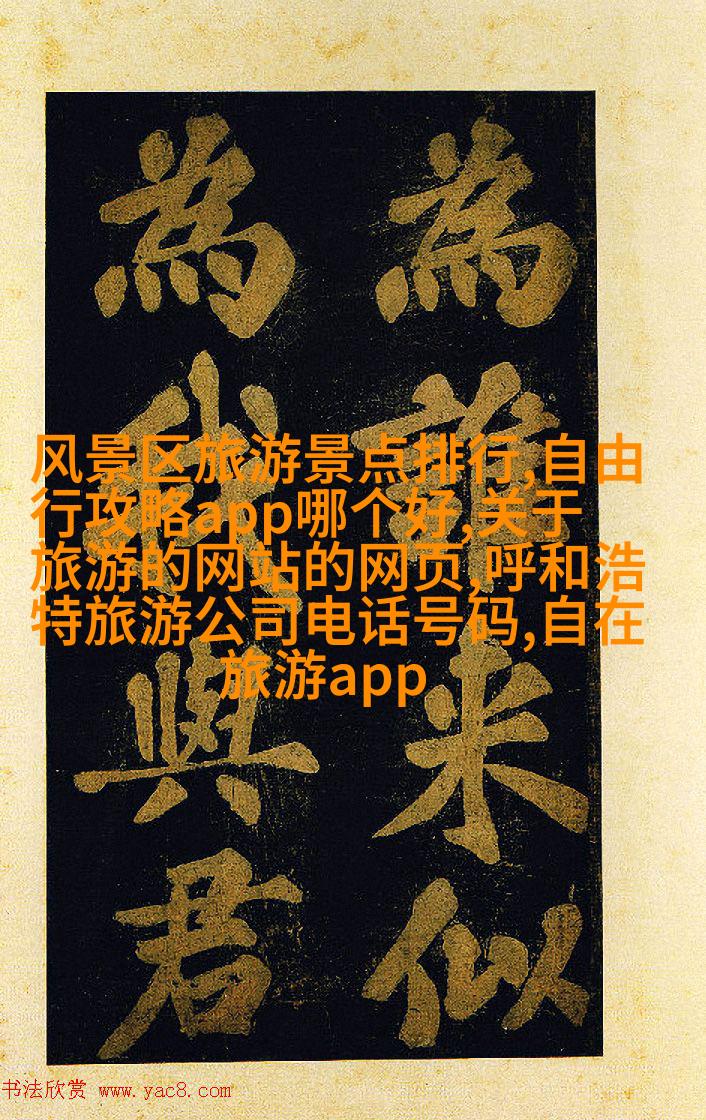 為誰米似
為與君
风景区旅游景点排行,自由
行攻略app哪个好,关于
旅游的网站的网页,呼和浩
特旅游公司电话号码,自在
旅游app
书法欣赏 www.yac8.com